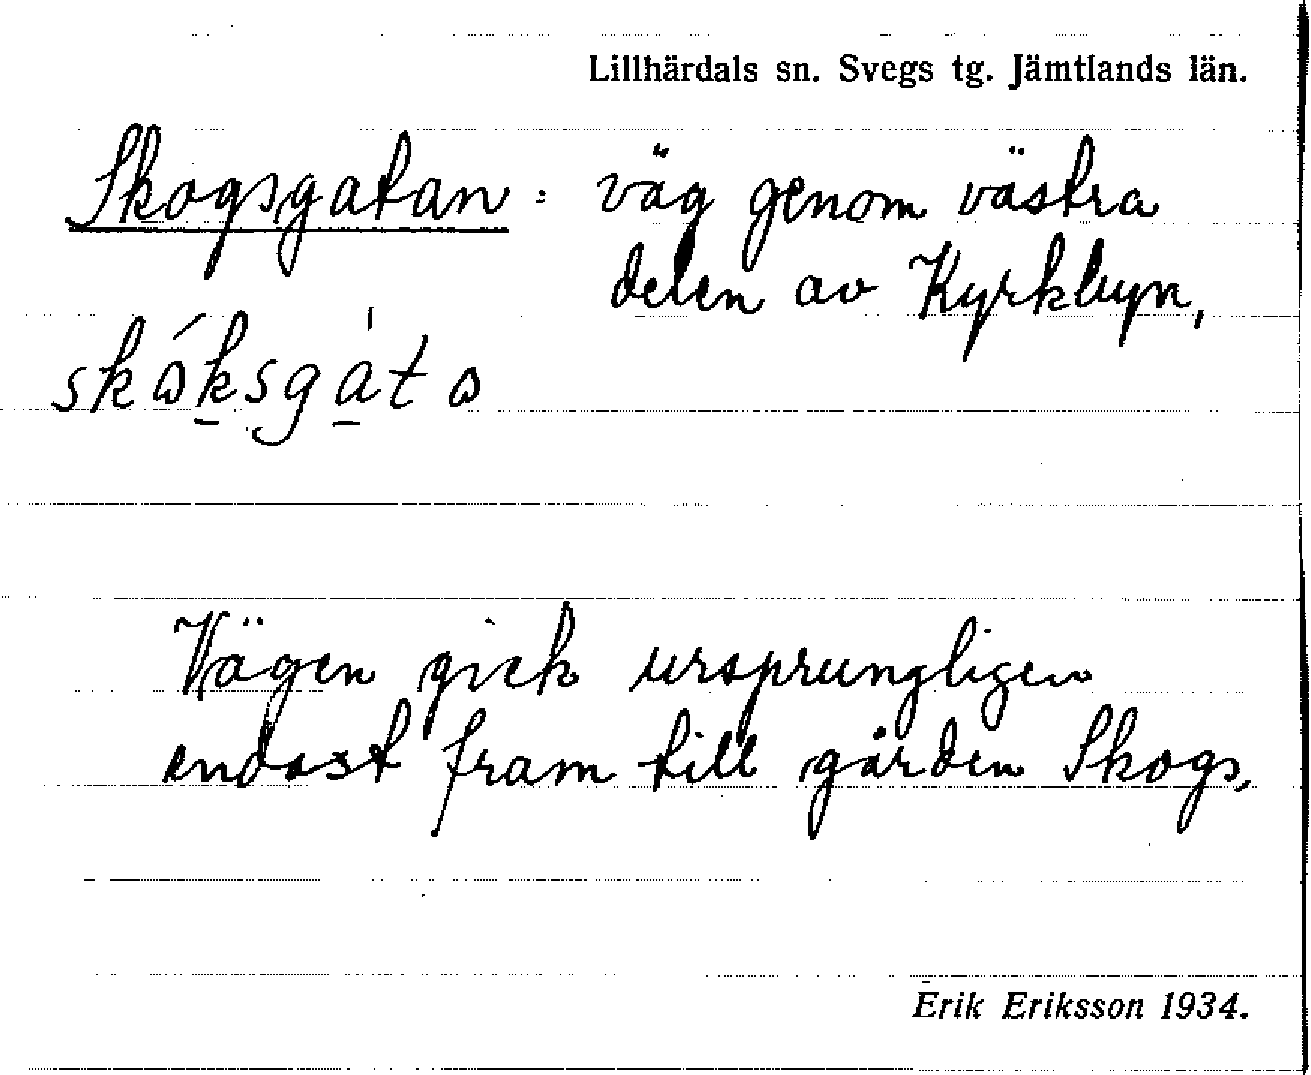 Lillhärdals sn. Svegs tg. Jämtlands län.
Skogsgatan: väg genom västra
delen av Kyrkbyn,
Vägen gick ursprungligen
endast fram till gården Skogs,
Erik Eriksson 1934.